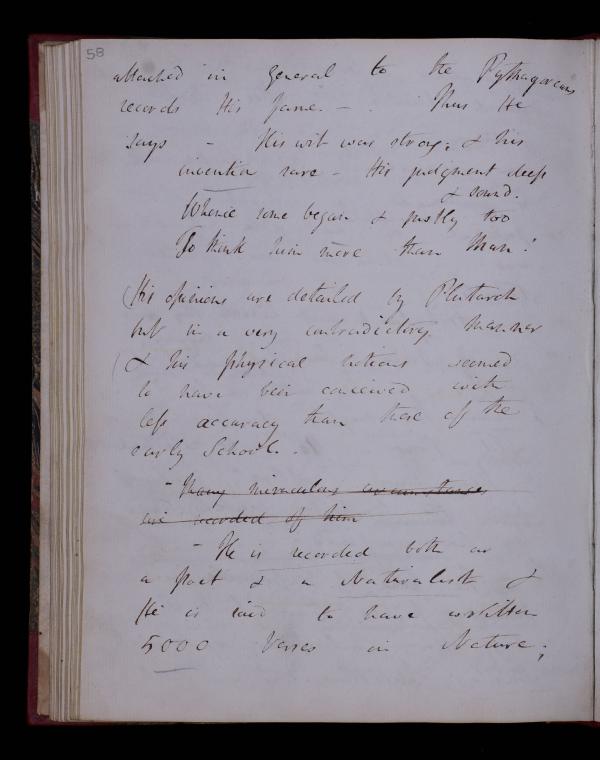 58
attached in general to the Pythagoreans
records His fame. - . Thus He
says - His wit was strong, & his
invention rare - His judgment deep
& sound.
Whence some began & justly too
To think him more than Man!
(His opinions are detailed by Plutarch
but in a very contradictory manner
(& his physical notions seemed
to have been conceived with
less accuracy than those of the
early School.
- Many miraculous circumstances
are recorded of him
- He is recorded both as
a poet & a Naturalist &
He is said to have written
5000 Verses on Nature;